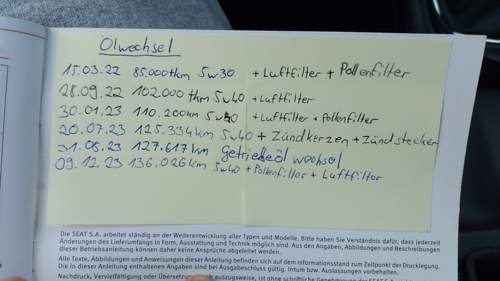 Ölwechsel
15.03.22 85.000tkm 5w30 + Luftfilter + Pollenfilter
28.09.22 102.000 tkm 5w40 + Luftfilter
30.01.23 110.200km 5w40 + Luftfilter + Pollenfilter
20.07.23 125.334km 5w40 + Zündkerzen + Zündstecker
31.08.23 127.617km Getriebeöl wechsel
09.12.23 136.026km 5w40 + Pollenfilter + Luftfilter
Die SEAT S.A. arbeitet ständig an der Weiterentwicklung aller Typen und Modelle. Bitte haben Sie Verständnis dafür, dass jederzeit
Änderungen des Lieferumfangs in Form, Ausstattung und Technik möglich sind. Aus den Angaben, Abbildungen und Beschreibungen
dieser Betriebsanleitung können daher keine Ansprüche abgeleitet werden.
Alle Texte, Abbildungen und Anweisungen dieser Anleitung befinden sich auf dem Informationsstand zum Zeitpunkt der Drucklegung.
Die in dieser Anleitung enthaltenen Angaben sind bei Ausgabeschluss gültig. Irrtum bzw. Auslassungen vorbehalten.
Nachdruck, Vervielfältigung oder Übersetzung, auch auszugsweise, ist ohne schriftliche Genehmigung der SEAT S.A.